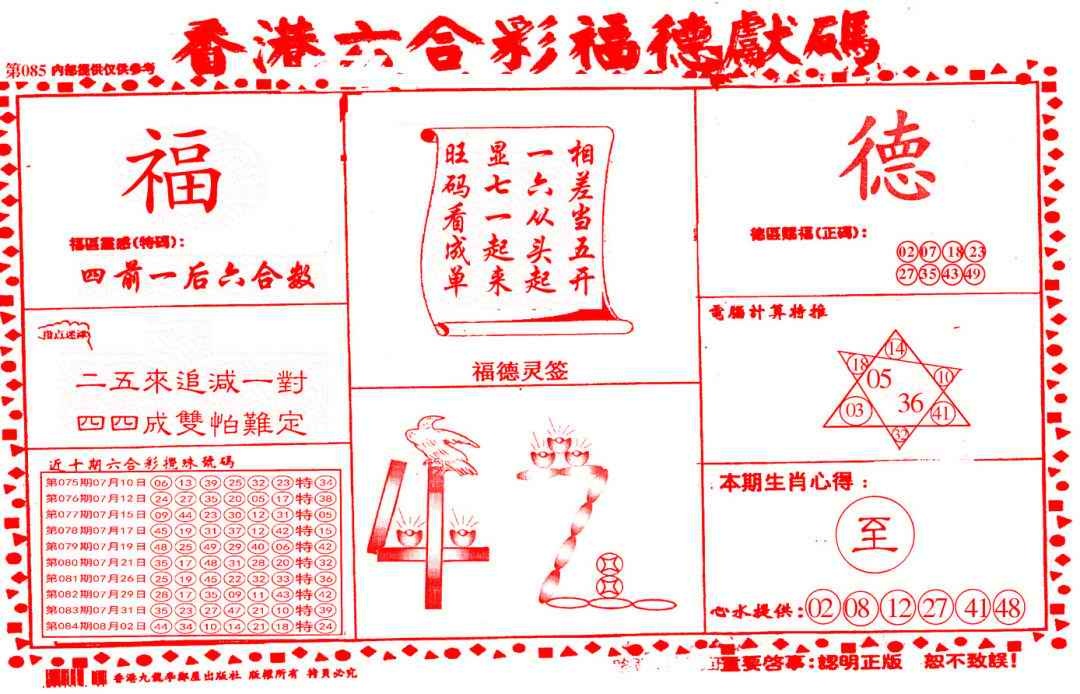 香港六合彩福德獻碼
第085 内部提供仅供参考
福
福區靈感(特碼):
四前一后六合数
二五來追减一對
四四成雙怕難定
近十期六合彩攪珠號碼
第075期07月10日 06 13 39 25 32 23 特 34
第076期07月12日 24 27 35 20 05 17 特 38
第077期07月15日 09 44 23 30 12 31 特 05
第078期07月17日 45 19 31 37 12 42 特 15
第079期07月19日 48 25 49 29 40 06 特 42
第080期07月21日 35 17 48 31 28 20 特 32
第081期07月26日 25 19 45 22 32 33 特 36
第082期07月29日 28 17 35 09 11 43 特 42
第083期07月31日 35 23 27 47 21 10 特 39
第084期08月02日 44 34 10 14 21 18 特 24
相差当五开
一六从头起
显七一起来
旺码看成单
福德灵签
42
德
德區賜福(正碼):
02 07 18 23
27 35 43 49
電腦計算特推
14
18 10
05
36
03 41
32
本期生肖心得:
至
心水提供: 02 08 12 27 41 48
香港九龍學鄰屋出版社 版權所有 特員必究
重要啓事:認明正版 恕不致誤!